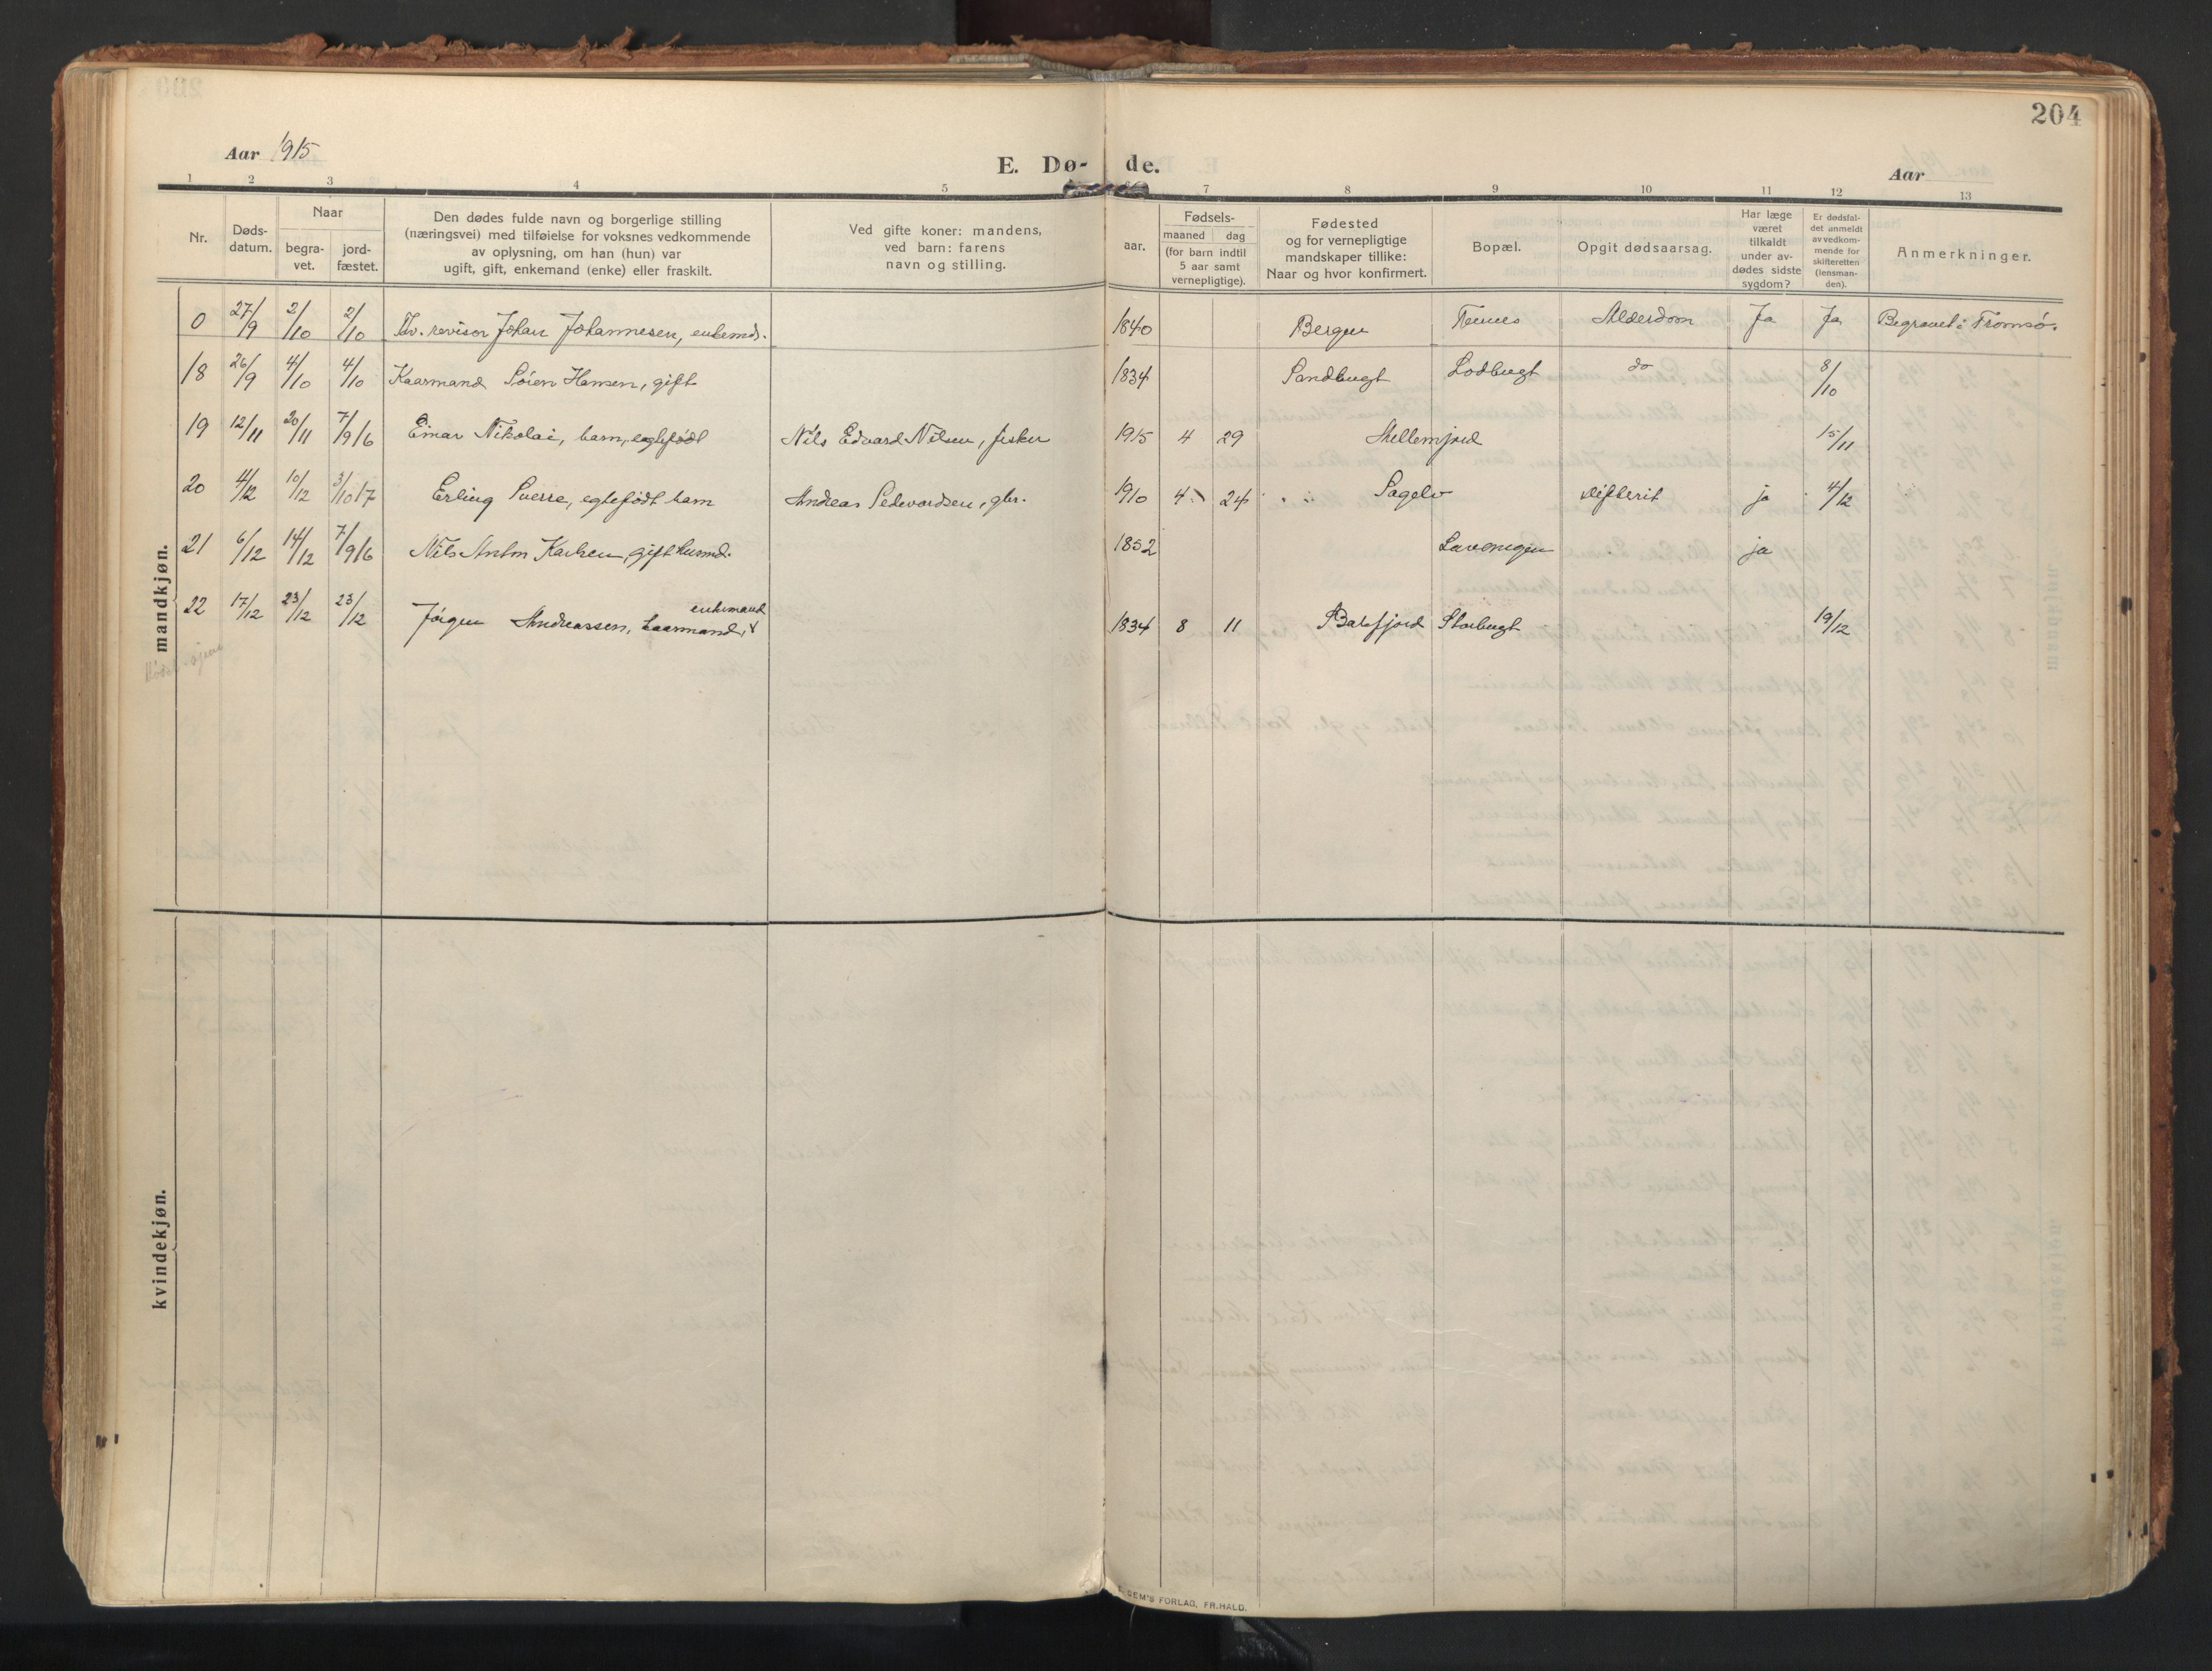 204
Aar 1915
E. Dø- de.
Aar
1 2 3 4 5 7 8 9 10 11 12 13
Nr.
Døds-
datum.
Naar
begra-
vet.
jord-
fæstet.
Den dødes fulde navn og borgerlige stilling
(næringsvei) med tilføielse for voksnes vedkommende
av oplysning, om han (hun) var
ugift, gift, enkemand (enke) eller fraskilt.
Ved gifte koner: mandens,
ved barn: farens
navn og stilling.
Fødsels-
aar.
maaned dag
(for barn indtil
5 aar samt
vernepligtige).
Fødested
og for vernepligtige
mandskaper tillike:
Naar og hvor konfirmert.
Bopæl.
Opgit dødsaarsag.
Har læge
været
tilkaldt
under av-
dødes sidste
sygdom?
Er dødsfal-
det anmeldt
av vedkom-
mende for
skifteretten
(lensman-
den).
Anmerkninger.
0 27/9 2/10 2/10 revisor Johan Johannesen, enkemd. 1840 Bergen Alderdom Ja Ja Begravet i Tromsø.
18 26/9 4/10 4/10 Kaarmand Sören Hansen, gift 1834 Sandbugt Lodbugt do 8/10
19 12/11 20/11 7/9 16 Einar Nikolai, barn, egtefödt Nils Edvard Nilsen, fisker 1915 4 29 Mellemjord 15/11
20 4/12 10/12 3/10 17 Erling Sverre, egtefödt barn Andreas Sedevardsen, gbr. 1910 4 24 " " Sagelv difterit ja 4/12
21 6/12 14/12 7/9 16 Nils Anton Karlsen, gift husmd. 1852 ja
22 17/12 23/12 23/12 Jörgen Andreassen, kaarmand, enkemand 1834 8 11 Balsfjord Storbugt 19/12
mandkjøn.
kvindekjøn.
SEM'S FORLAG, FR. HALD.